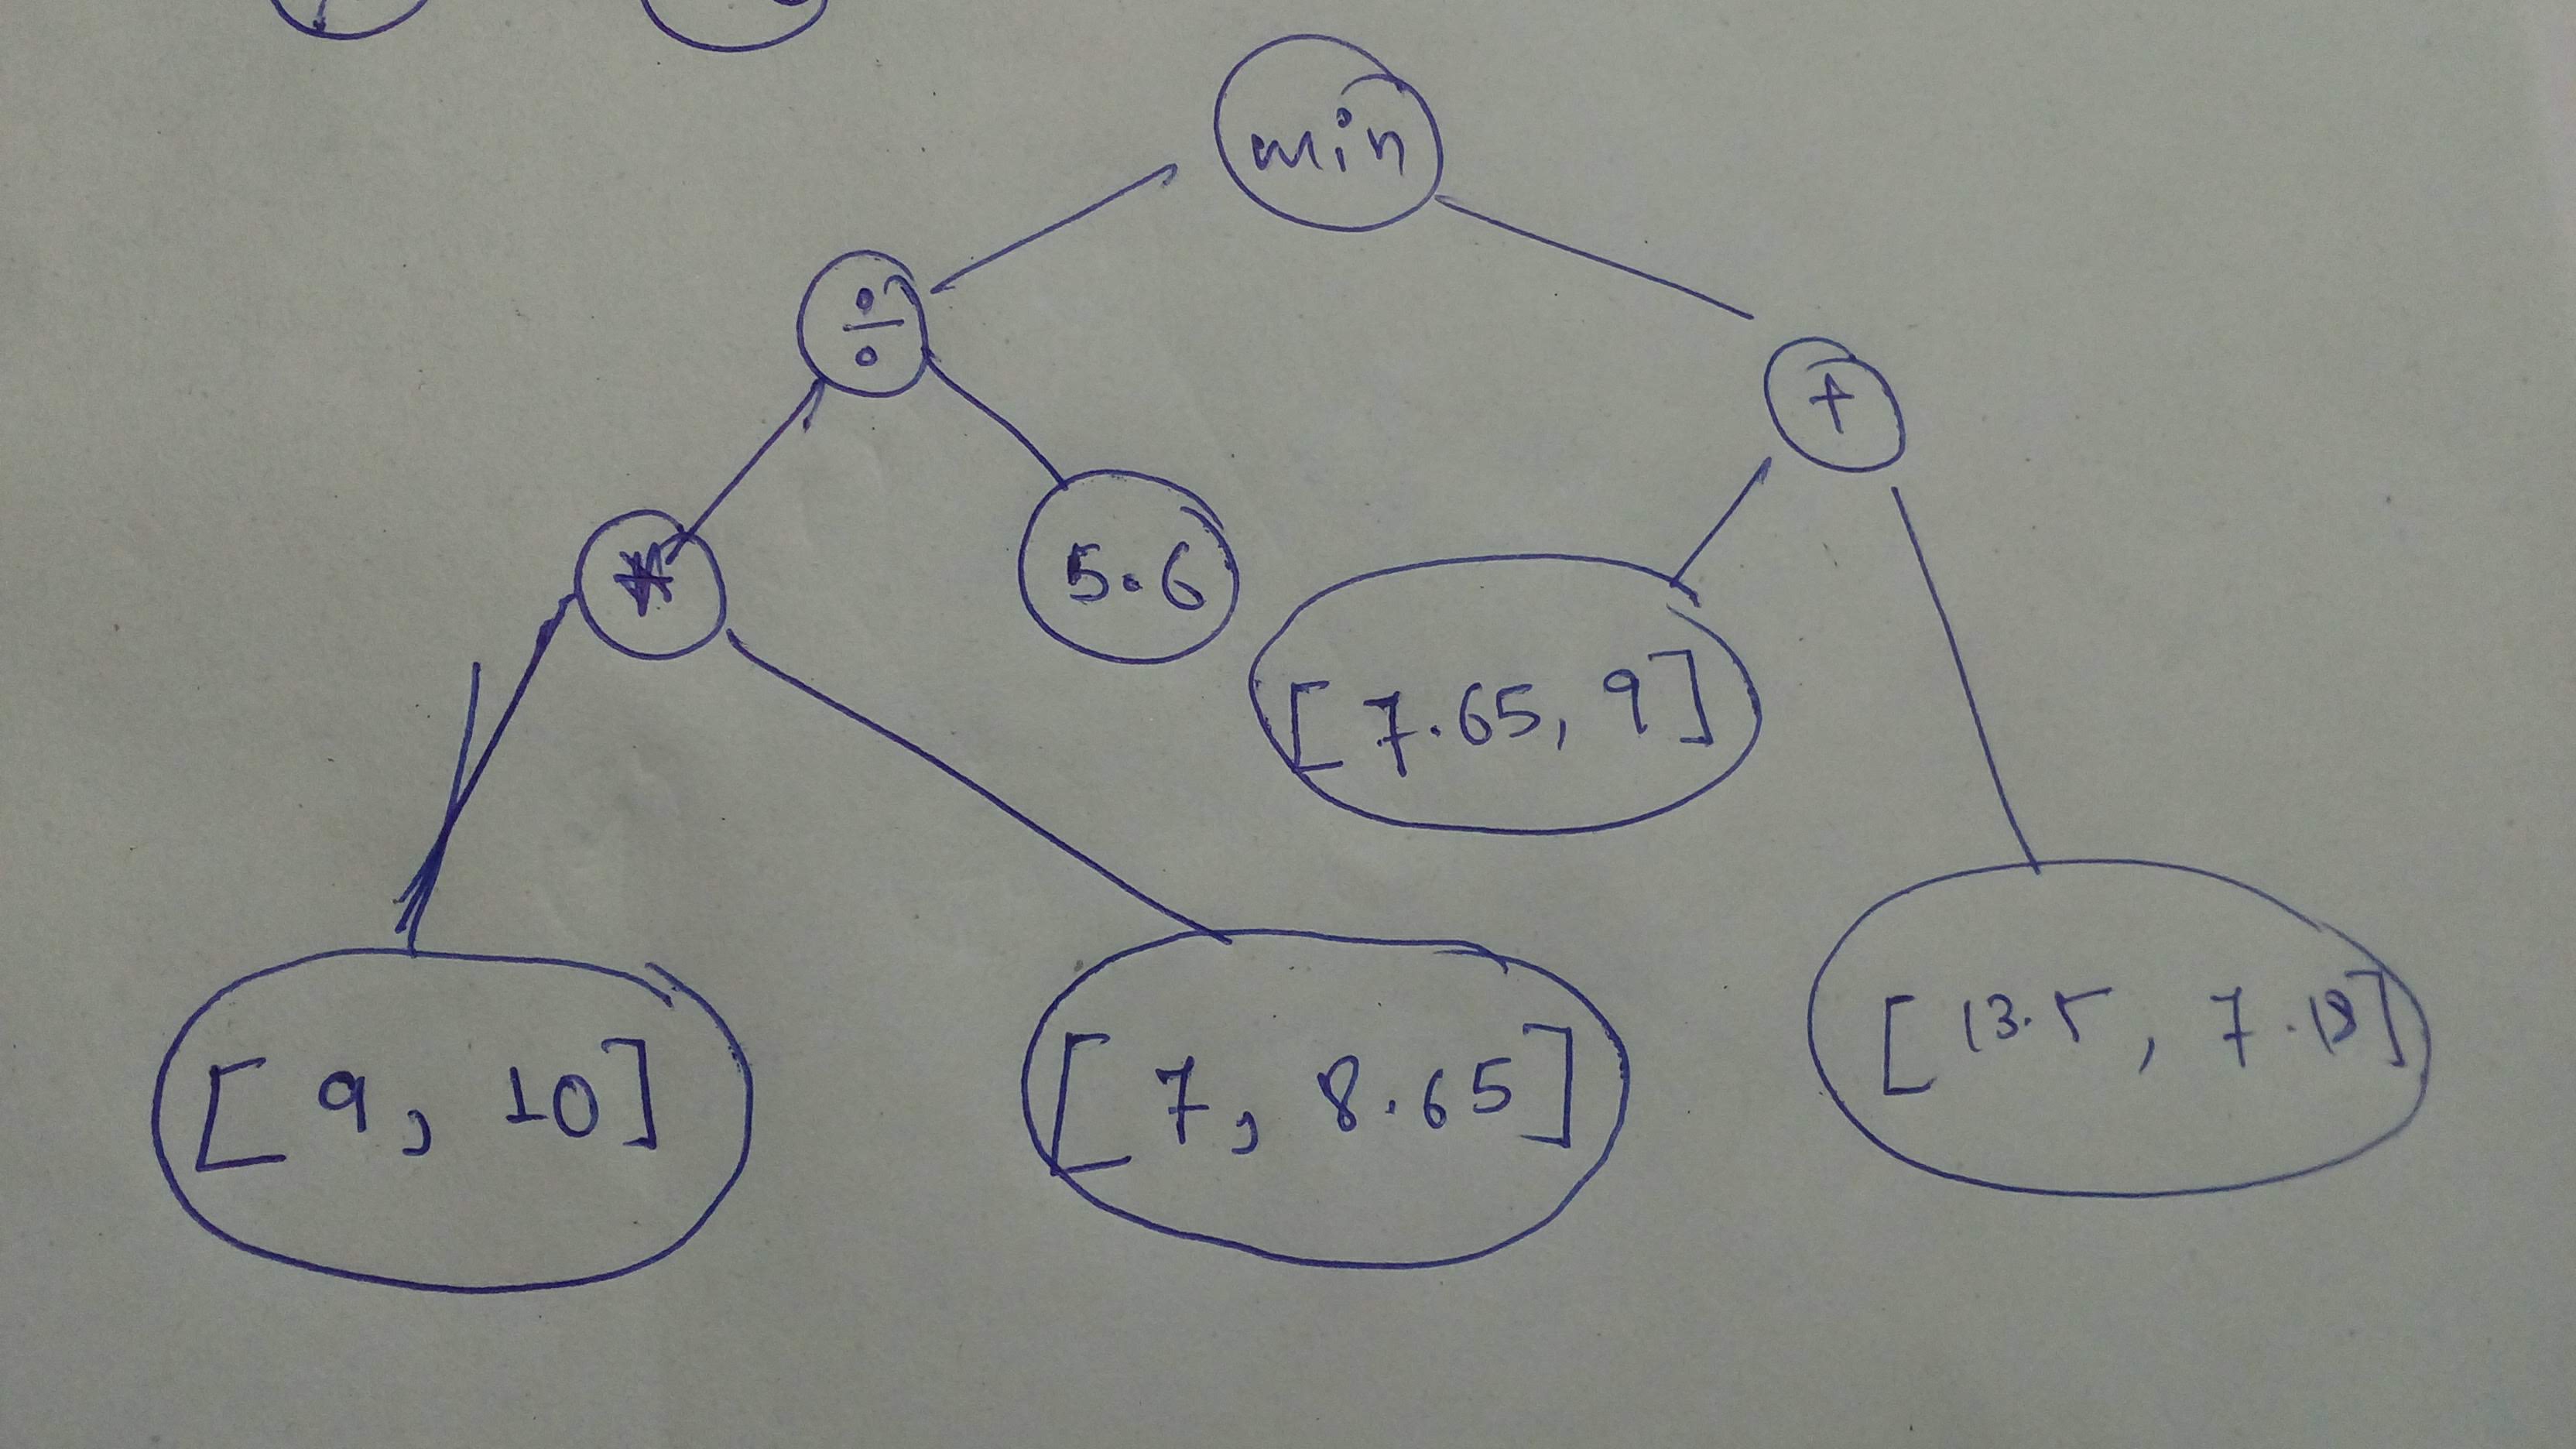 min
÷
+
*
5.6
[7.65, 9]
[9, 10]
[7, 8.65]
[13.5, 7.18]